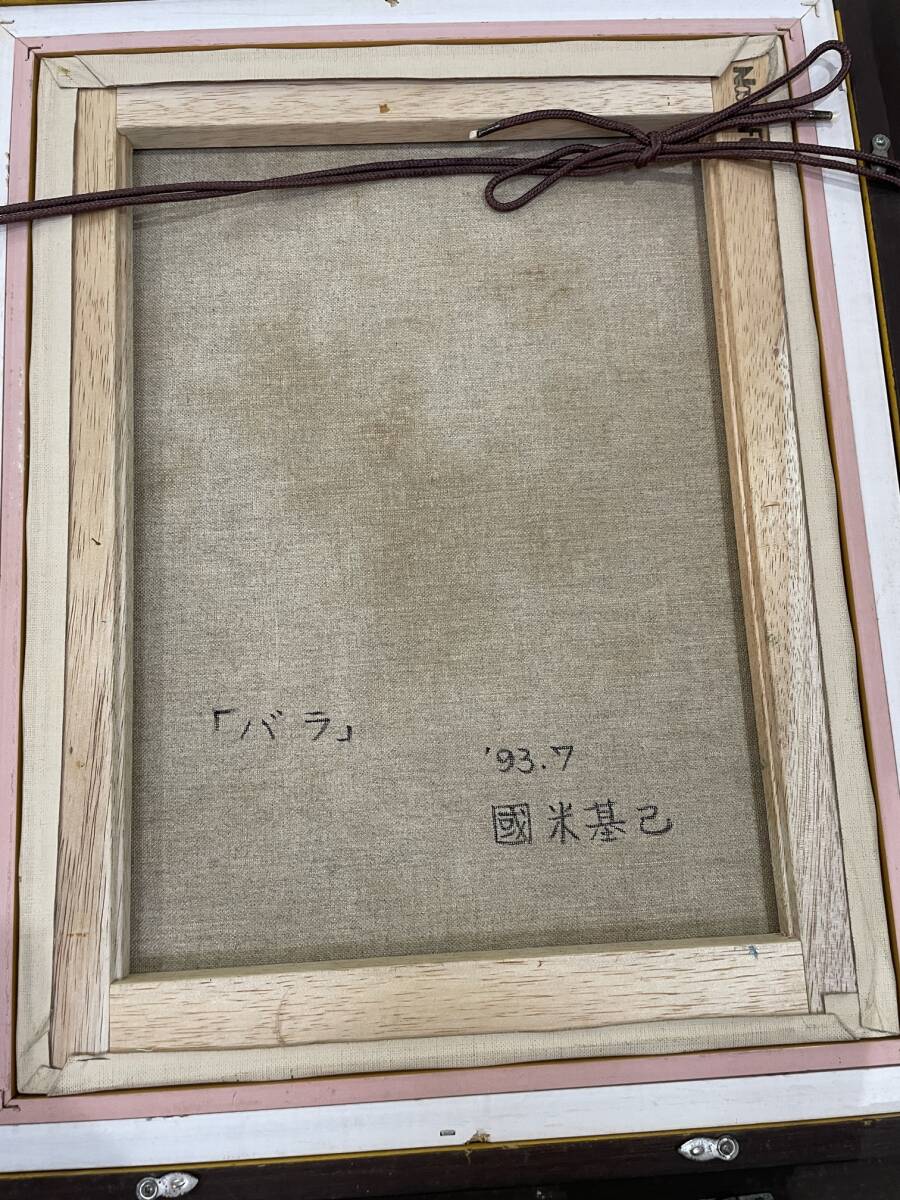 「バラ」
'93.7
國米基己